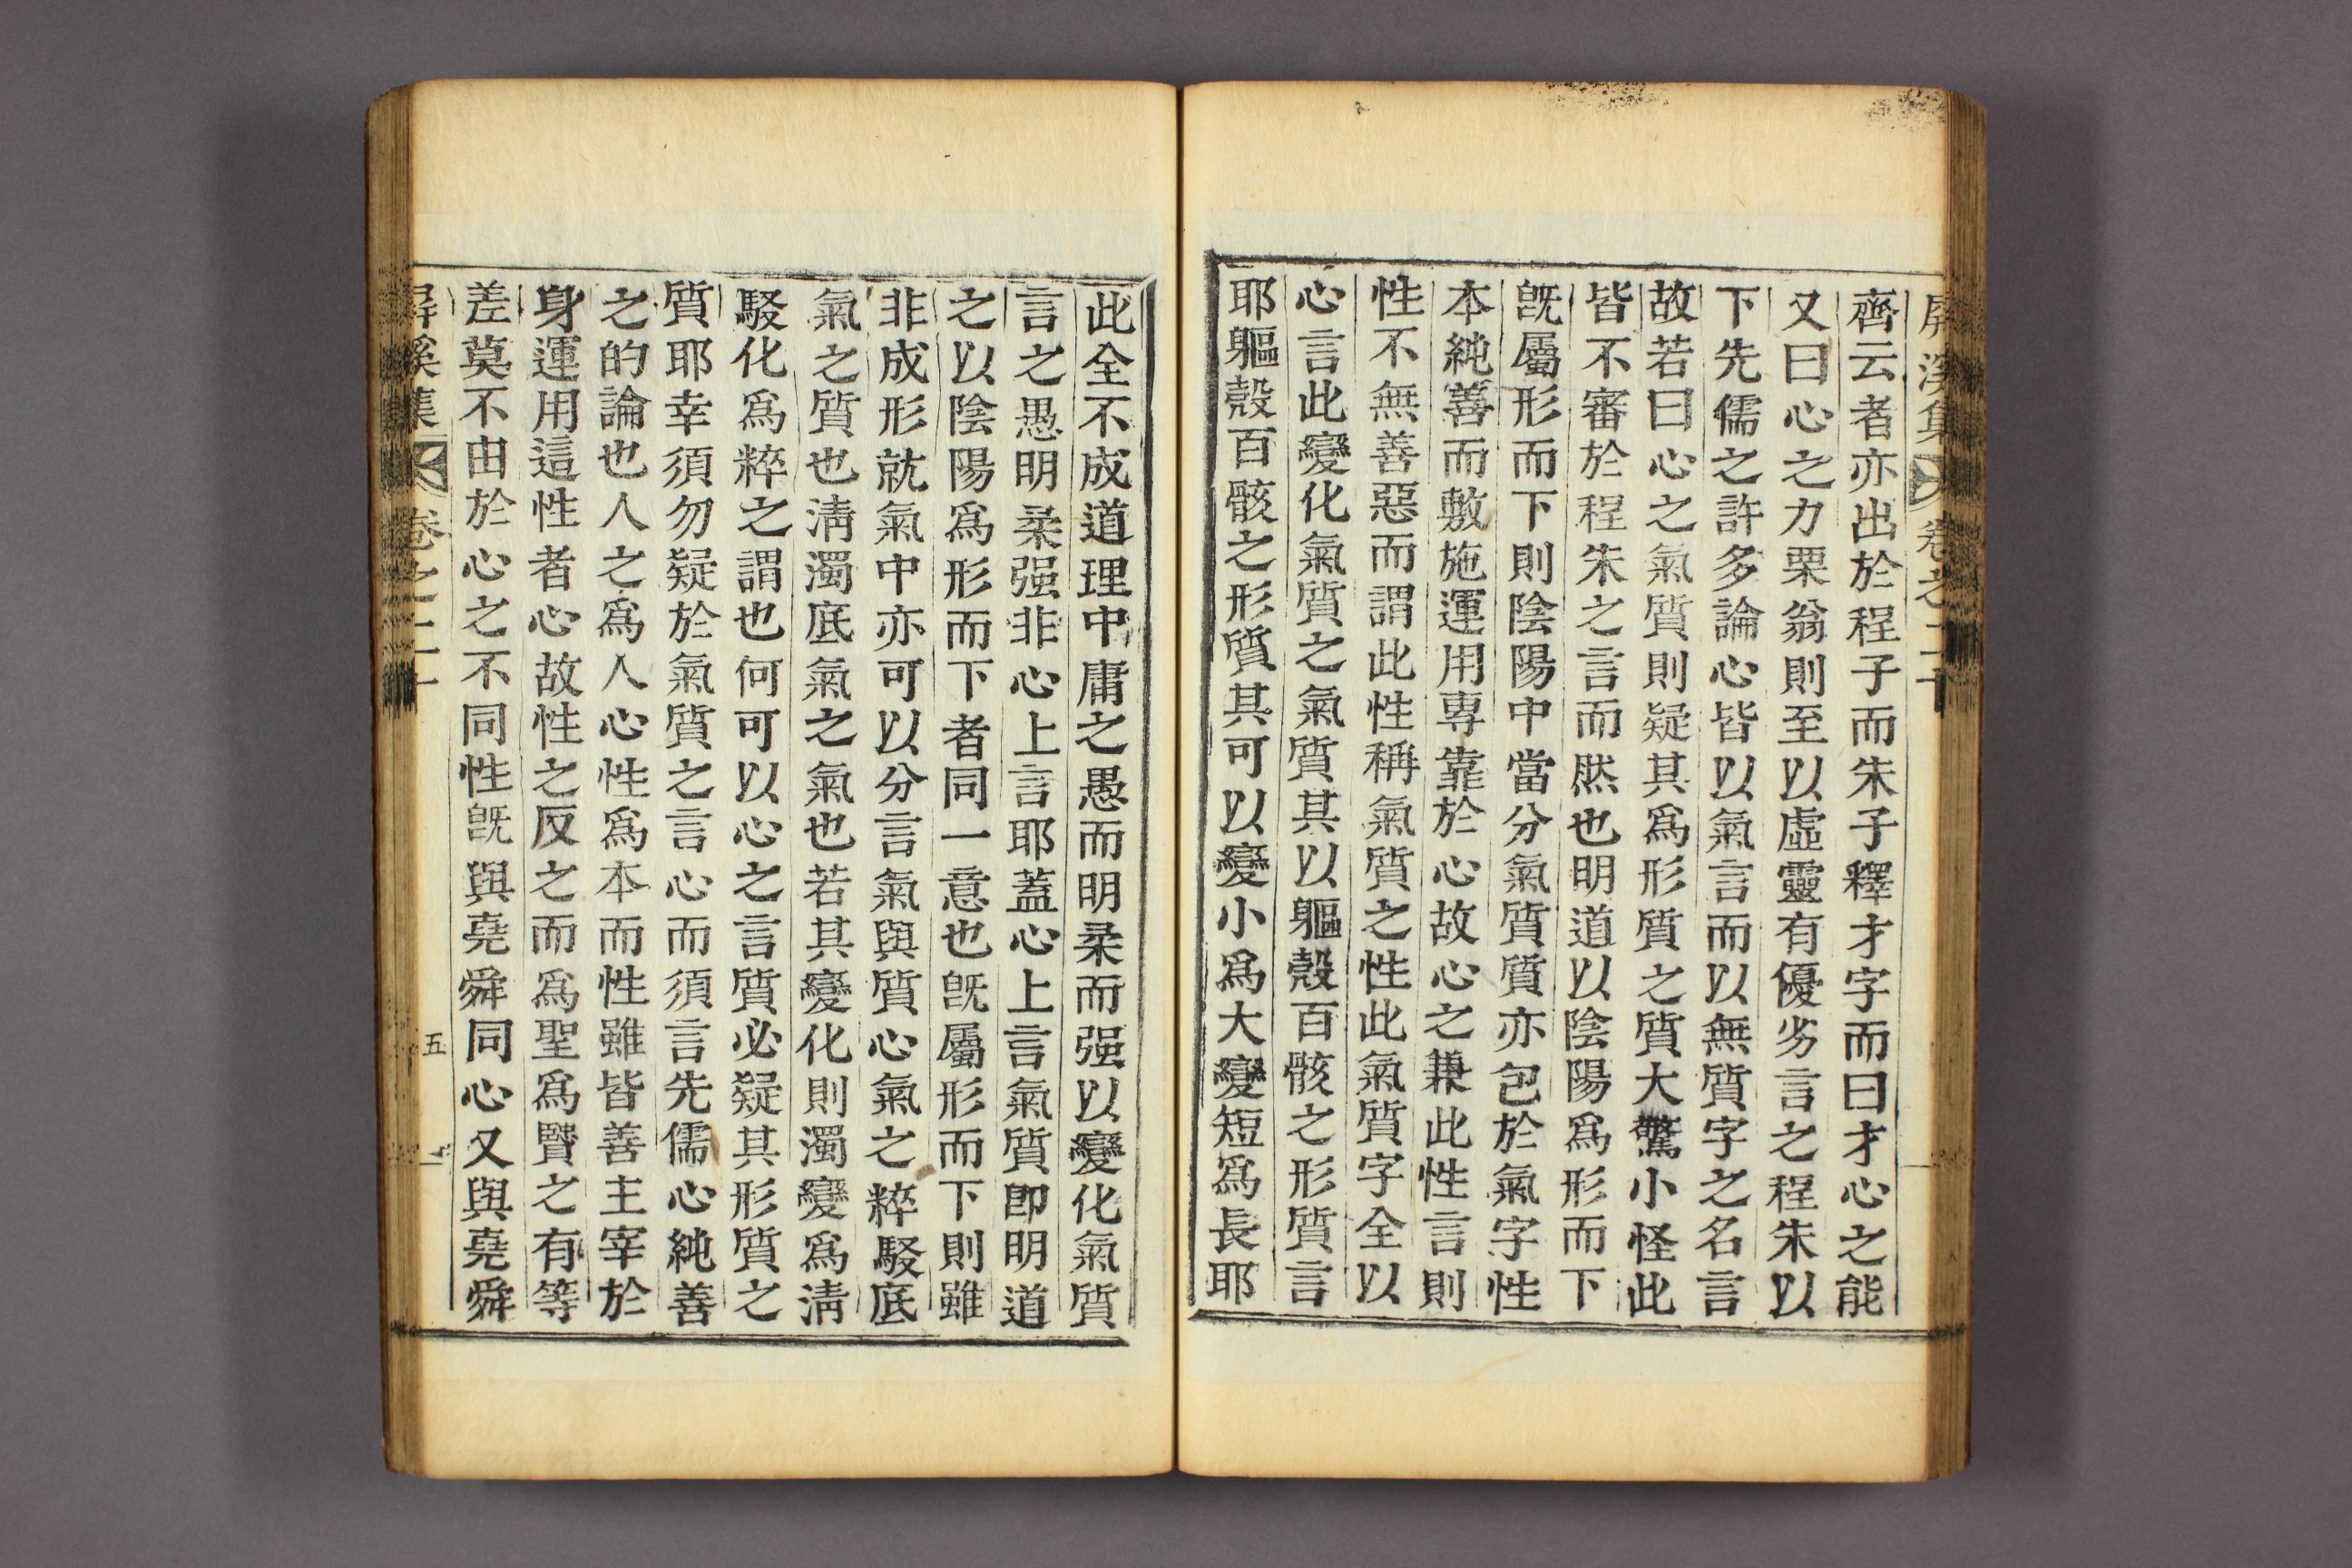 屏溪集
卷之二十
齊云者亦出於程子而朱子釋才字而曰才心之能
又曰心之力栗翁則至以虛靈有優劣言之程朱以
下先儒之許多論心皆以氣言而以無質字之名言
故若曰心之氣質則疑其爲形質之質大驚小怪此
皆不審於程朱之言而然也明道以陰陽爲形而下
旣屬形而下則陰陽中當分氣質質亦包於氣字性
本純善而敷施運用專靠於心故心之兼此性言則
性不無善惡而謂此性稱氣質之性此氣質字全以
心言此變化氣質之氣質其以軀殼百骸之形質言
耶軀殼百骸之形質其可以變小爲大變短爲長耶
此全不成道理中庸之愚而明柔而强以變化氣質
言之愚明柔强非心上言耶蓋心上言氣質卽明道
之以陰陽爲形而下者同一意也旣屬形而下則雖
非成形就氣中亦可以分言氣與質心氣之粹駁底
氣之質也淸濁底氣之氣也若其變化則濁變爲淸
駁化爲粹之謂也何可以心之言質必疑其形質之
質耶幸須勿疑於氣質之言心而須言先儒心純善
之的論也人之爲人心性爲本而性雖皆善主宰於
身運用這性者心故性之反之而爲聖爲賢之有等
差莫不由於心之不同性旣與堯舜同心又與堯舜
屛溪集
卷之二十
五